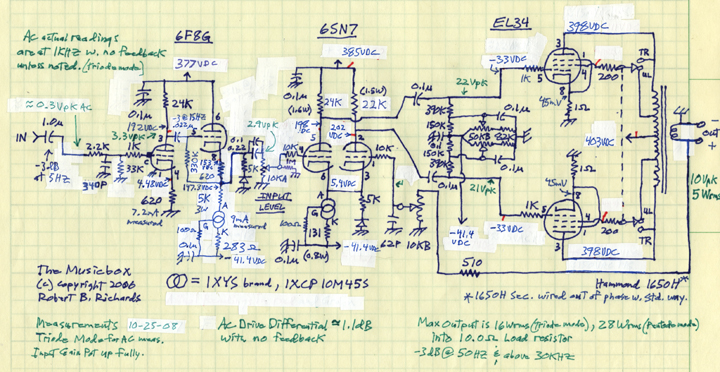 Ac actual readings
are at 1KHz w. no feedback
unless noted. (Triode mode)
6F8G
6SN7
EL34
377VDC
385VDC
398VDC
-33VDC
≈ 0.3Vpk AC
0.1μ
24K
0.1μ
(1.6W)
24K
(1.5W)
22K
0.1μ
22Vpk
1K
200
TR
UL
45mV
1Ω
IN
1.0μ
192VDC
3.3Vpk
2.9Vpk
198
VDC
202
VDC
390K
150K
150K
390K
0.1μ
0.1
50KB
82K
403VDC
OUT
2.2K
1K
33K
340P
-3dB
at 5Hz
4.48VDC
620
7.2mA
measured
147.3VDC
5K
3W
9mA
measured
283Ω
-41.4VDC
100Ω
0.1μ
0.1
0.22
10KA
10K
INPUT
LEVEL
5.4VDC
100Ω
131
(0.8W)
-41.4VDC
0.1μ
10K
5K
62P
10KB
0.1μ
21Vpk
-41.4
VDC
-33VDC
1K
45mV
1Ω
200
UL
TR
398VDC
10Vpk
5Wrms
510
The Musicbox
(c) copyright 2006
Robert B. Richards
= IXYS brand, IXCP10M45S
Hammond 1650H*
*1650H Sec. wired out of phase w. std. way.
Measurements 10-25-08
Triode Mode for AC meas.
Input Gain Pot up fully.
Ac Drive Differential ≈ 1.1dB
with no feedback
Max Output is 16Wrms (Triode mode), 28Wrms (Pentode mode)
into 10.0Ω Load resistor
-3dB @ 50Hz & above 30KHz